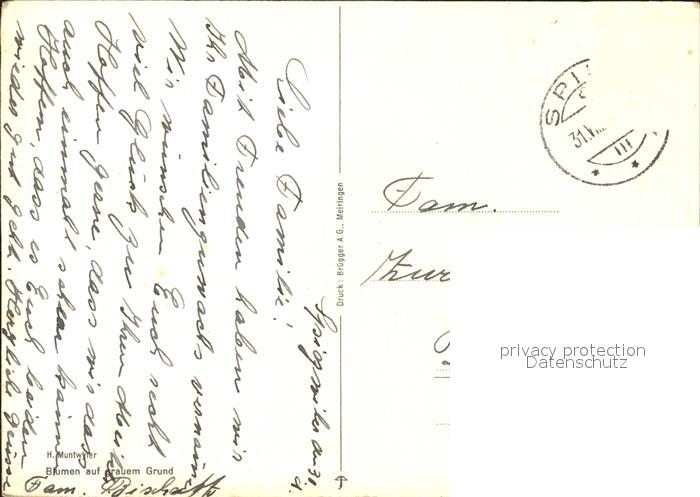 Sigriswil den 31.
Liebe Familie!
Mit Freuden haben wir
Ihr Familienzuwachs vernommen
Wir wünschen Euch recht
viel Glück zu Ihrem
Hoffen gerne, dass wir das
auch einmal sehen kann
Hoffen, dass es Euch beiden
wieder gut geht. Herzliche Grüsse
Fam. Bischoff
H. Muntwyler
Blumen auf grauem Grund
Druck: Brügger A.G., Meiringen
Fam.
SPI
31.V
III
privacy protection
Datenschutz